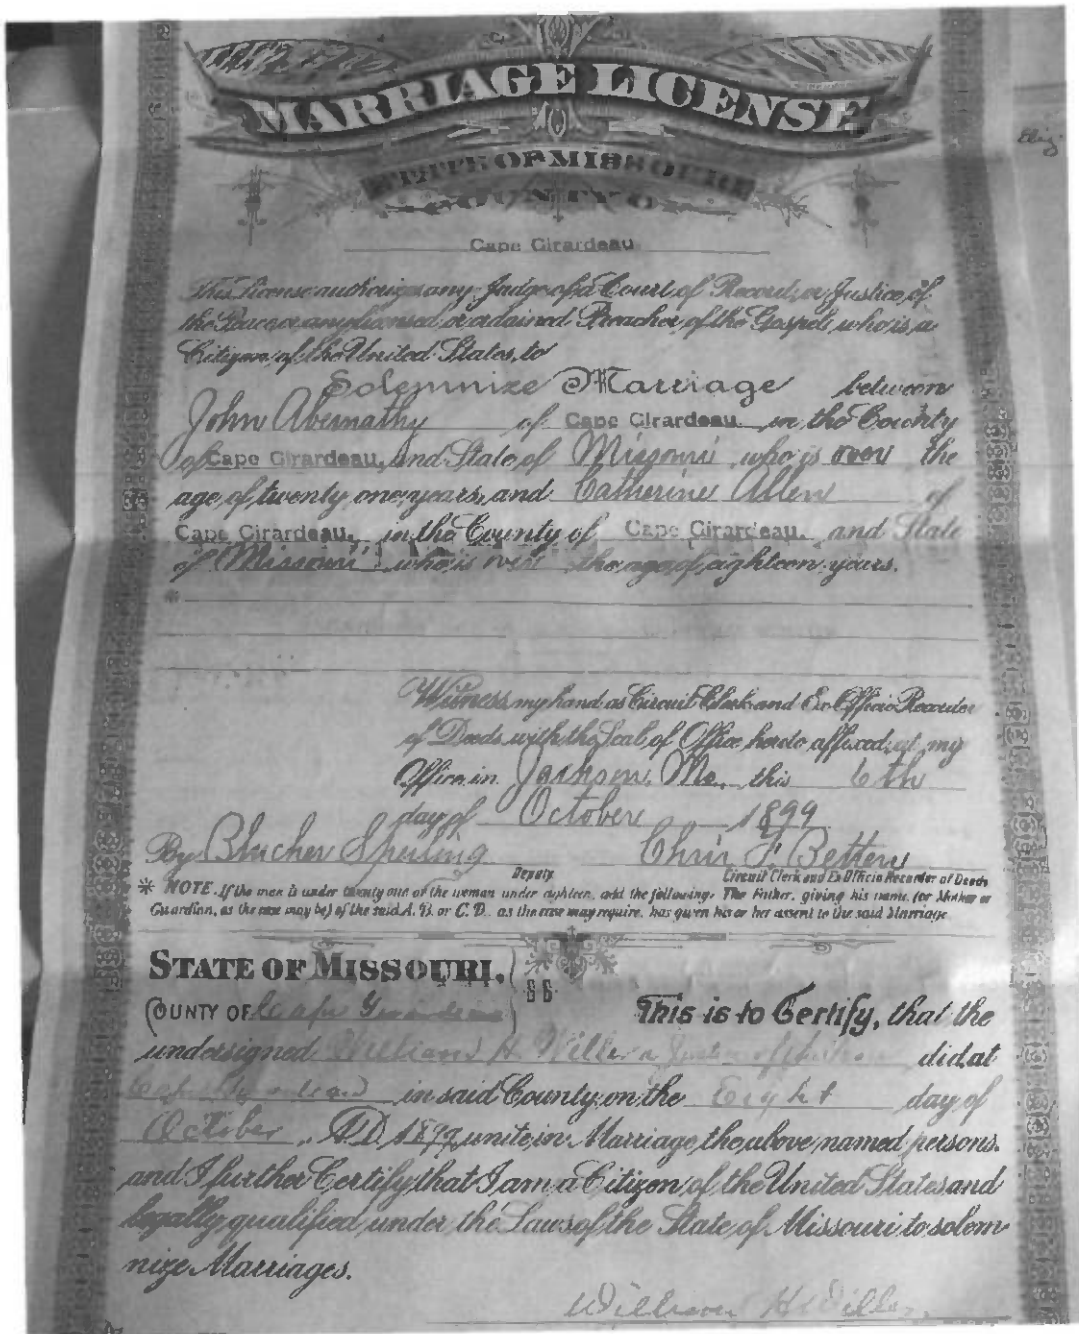 MARRIAGE LICENSE
STATE OF MISSOURI
COUNTY O
Cape Girardeau
This License authorizes any Judge of a Court of Record, or Justice of
the Peace or any licensed or ordained Preacher of the Gospel, who is a
Citizen of the United States, to
Solemnize Marriage between
John Abernathy of Cape Girardeau in the County
of Cape Girardeau, and State of Missouri who is over the
age of twenty one years, and Catherine Allen of
Cape Girardeau, in the County of Cape Girardeau, and State
of Missouri who is over the age of eighteen years.
*
Witness my hand as Circuit Clerk and Ex Officio Recorder
of Deeds, with the Seal of Office, hereto affixed, at my
Office in Jackson, Mo. this 6th
day of October 1899
By Blucher Sperling Chris F. Betten
Deputy. Circuit Clerk and Ex Officio Recorder of Deeds
* NOTE. If the man is under twenty one of the woman under eighteen, add the following: The Father, giving his name, (or Mother or
Guardian, as the case may be) of the said A. B. or C. D. as the case may require, has given his or her assent to the said Marriage
STATE OF MISSOURI,
COUNTY OF Cape Girardeau This is to Certify, that the
undersigned William H. Willer a did at
Cape Girardeau in said County on the Eight day of
October, A.D. 1899 unite in Marriage the above named persons.
and I further Certify that I am a Citizen of the United States and
legally qualified under the Laws of the State of Missouri to solem
nize Marriages.
William H Willer